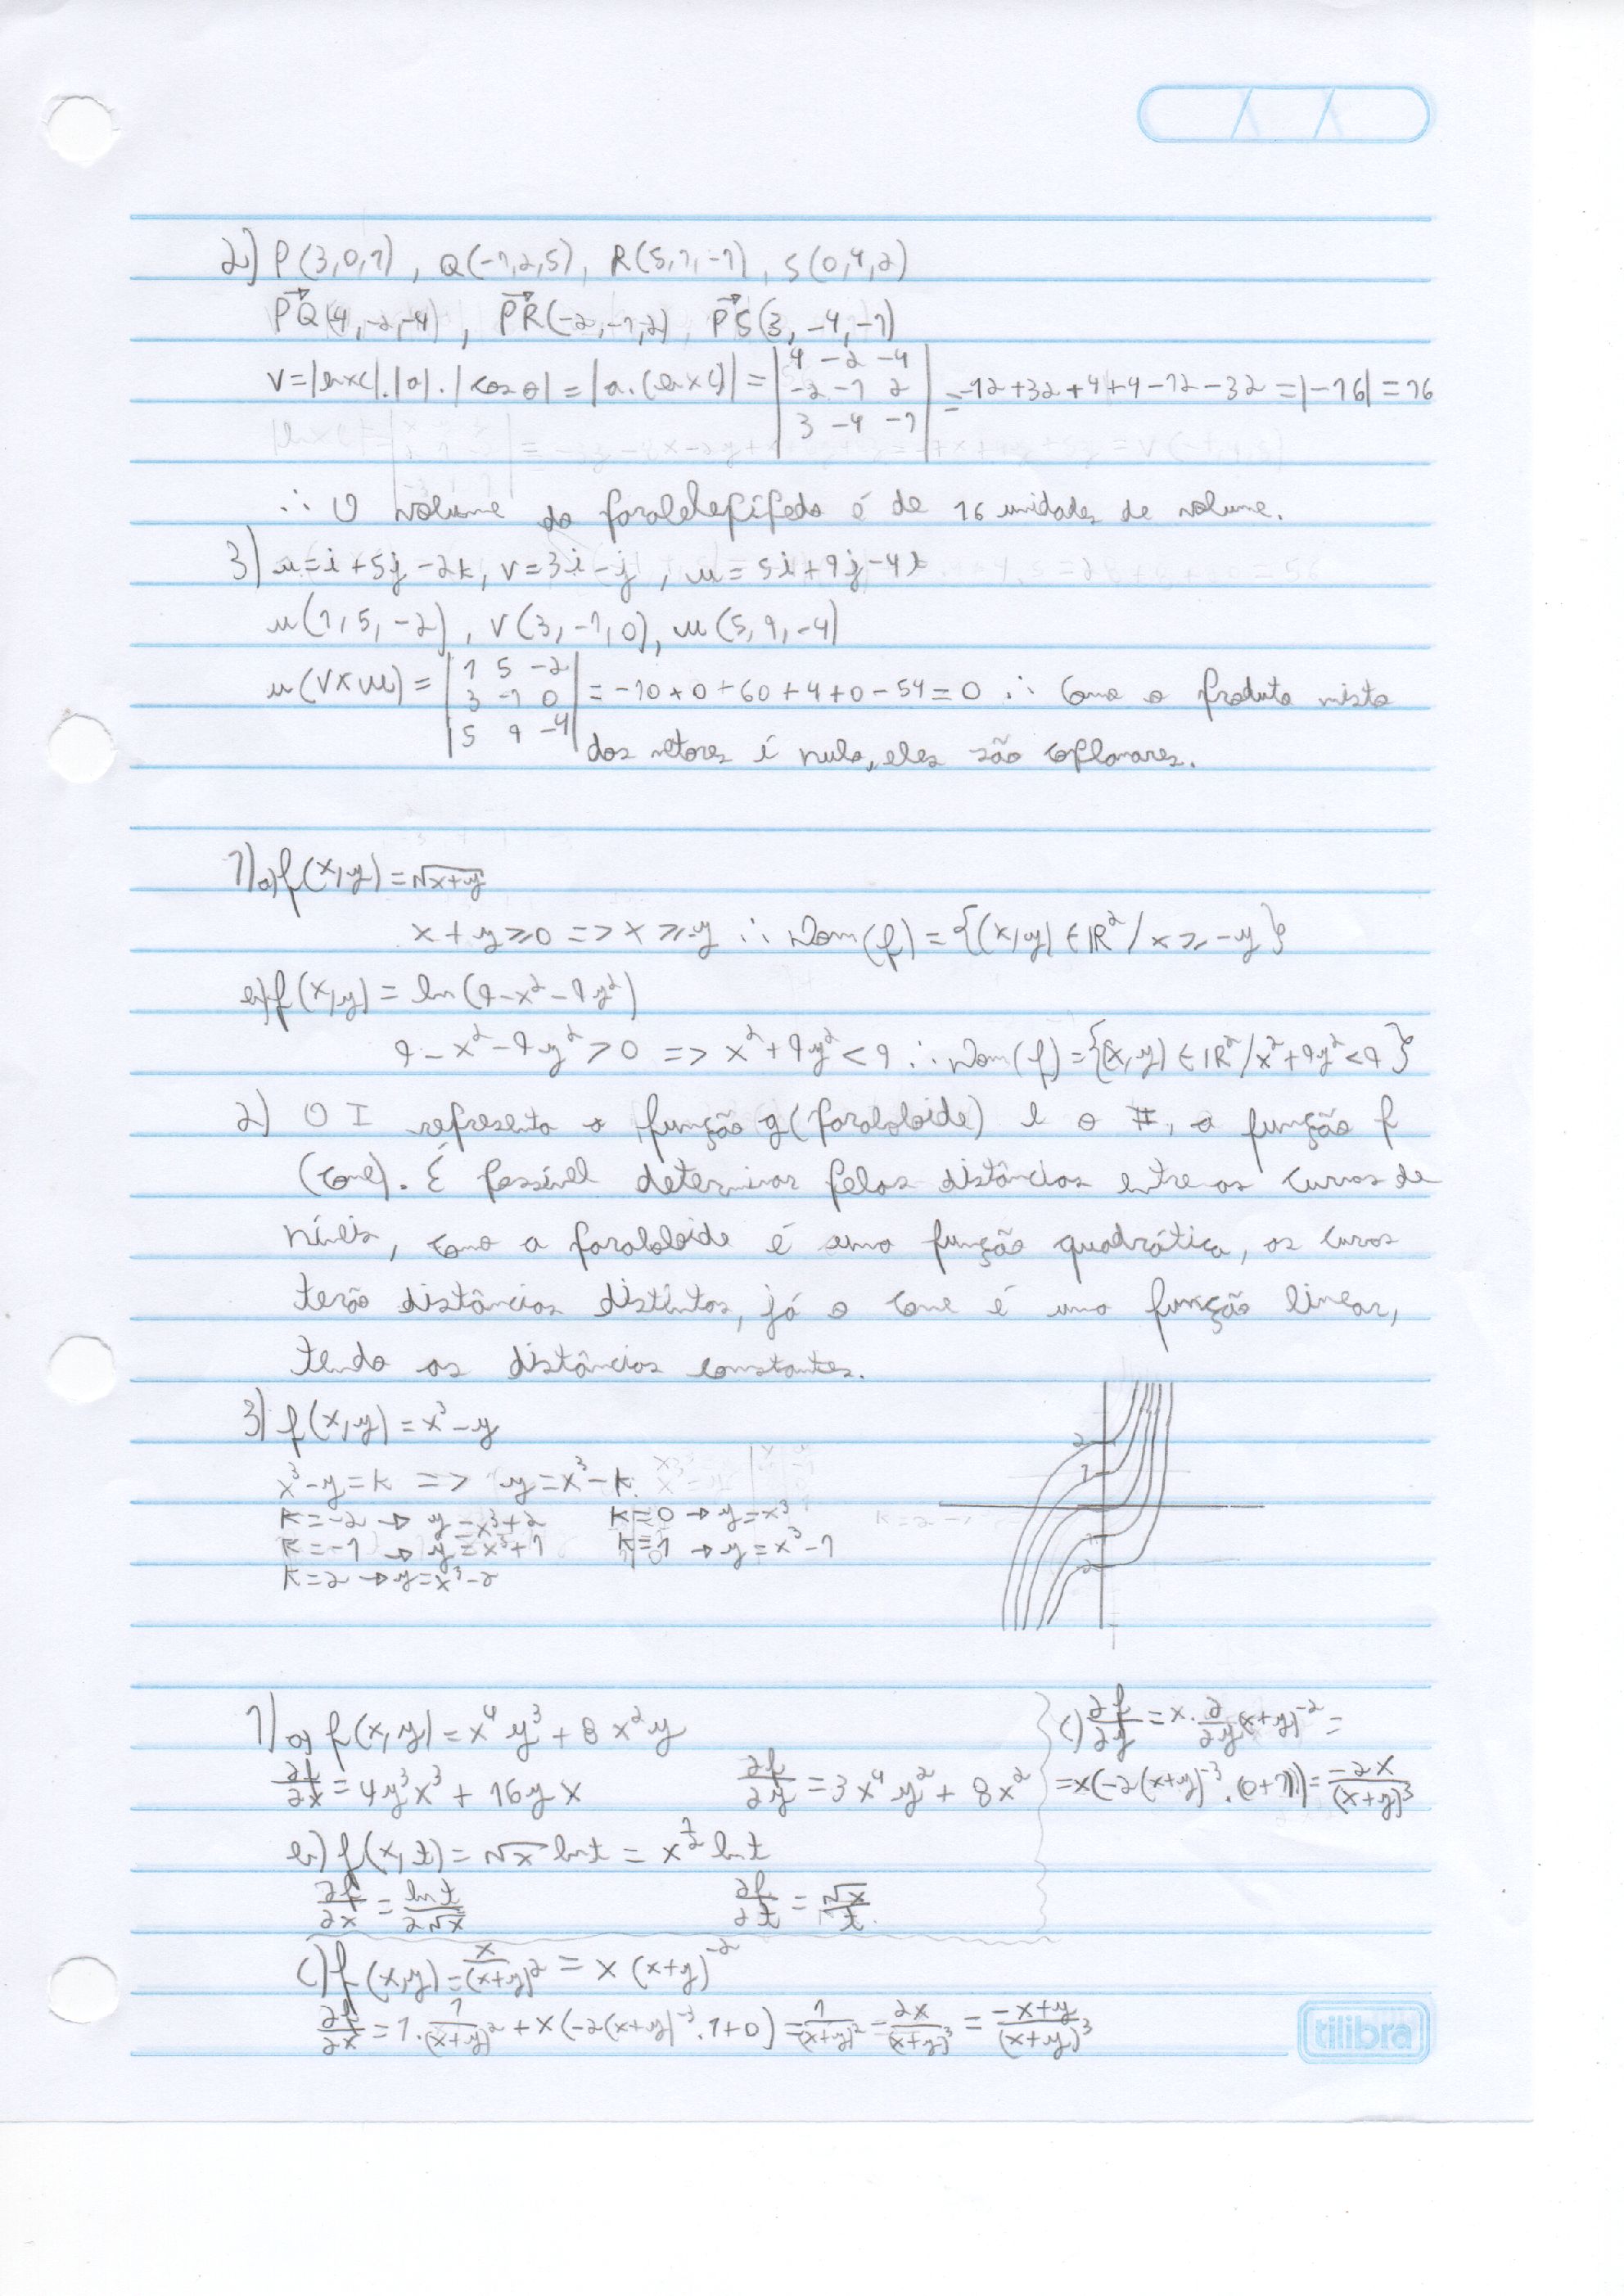 2) P(3,0,1), Q(-1,2,5), R(5,1,-1), S(0,4,2)
PQ(4,-2,-4), PR(-2,-1,2), PS(3,-4,-1)
V=|bxc|.|a|.|cos θ| = |a.(bxc)| = |4 -2 -4| = -12+32+4+4-12-32 = |-16| = 16
-2 -1 2
3 -4 -1
∴ O volume do paralelepípedo é de 16 unidades de volume.
3) u=i+5j-2k, v=3i-j, w=5i+9j-4k
u(1,5,-2), v(3,-1,0), w(5,9,-4)
u(vxw) = |1 5 -2| = -10+0+60+4+0-54=0 ∴ Como o produto misto
3 -1 0
5 9 -4
dos vetores é nulo, eles são coplanares.
1) a) f(x,y)=√x+y
x+y≥0 => x≥-y ∴ Dom(f)={(x,y)∈IR²/x≥-y}
b) f(x,y)=ln(9-x²-9y²)
9-x²-9y²>0 => x²+9y²<9 ∴ Dom(f)={(x,y)∈IR²/x²+9y²<9}
2) O I representa a função g(paraboloide) e o II, a função f
(cone). É possível determinar pelas distâncias entre as curvas de
níveis, como a paraboloide é uma função quadrática, as curvas
terão distâncias distintas, já o cone é uma função linear,
tendo as distâncias constantes.
3) f(x,y)=x³-y
x³-y=k => y=x³-k
k=-2 → y=x³+2 k=0 → y=x³
k=-1 → y=x³+1 k=1 → y=x³-1
k=2 → y=x³-2
2
1
-1
-2
1) a) f(x,y)=x⁴y³+8x²y
∂f/∂x=4y³x³+16yx ∂f/∂y=3x⁴y²+8x²
b) f(x,t)=√x ln t = x^½ ln t
∂f/∂x = ln t/2√x ∂f/∂t = √x/t
c) ∂f/∂y = x.∂/∂y(x+y)⁻² =
=x(-2(x+y)⁻³.(0+1))= -2x/(x+y)³
c) f(x,y)=x/(x+y)² = x(x+y)⁻²
∂f/∂x = 1.1/(x+y)² + x(-2(x+y)⁻³.1+0) = 1/(x+y)² - 2x/(x+y)³ = -x+y/(x+y)³
tilibra